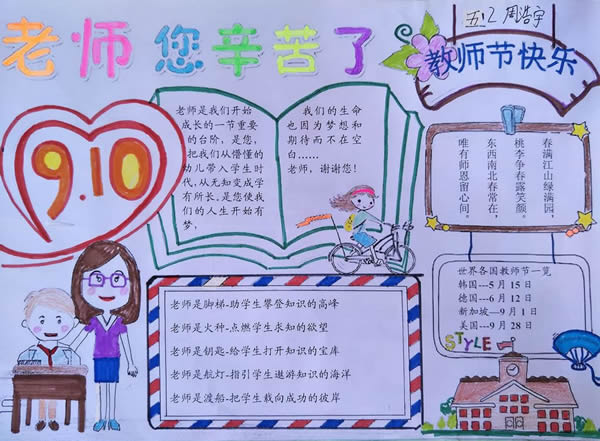 老师您辛苦了
周浩宇
教师节快乐
9.10
老师是我们开始
成长的一节重要
的台阶，是您，
把我们从懵懂的
幼儿带入学生时
代，从无知变成学
有所长。是您使我
们的人生开始有
梦，
我们的生命
也因为梦想和
期待而不在空
白……
老师，谢谢您！
春满江山绿满园，
桃李争春露笑颜。
东西南北春常在，
唯有师恩留心间。
世界各国教师节一览
韩国---5月15日
德国---6月12日
新加坡---9月1日
美国---9月28日
STYLE
老师是脚梯-助学生攀登知识的高峰
老师是火种-点燃学生求知的欲望
老师是钥匙-给学生打开知识的宝库
老师是航灯-指引学生遨游知识的海洋
老师是渡船-把学生载向成功的彼岸